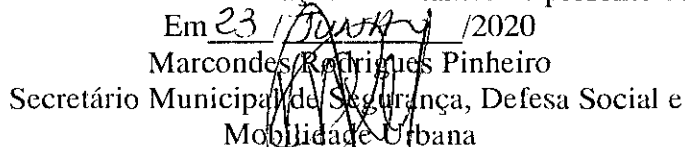 Em 23 / Junho /2020
Marcondes Rodrigues Pinheiro
Secretário Municipal de Segurança, Defesa Social e
Mobilidade Urbana